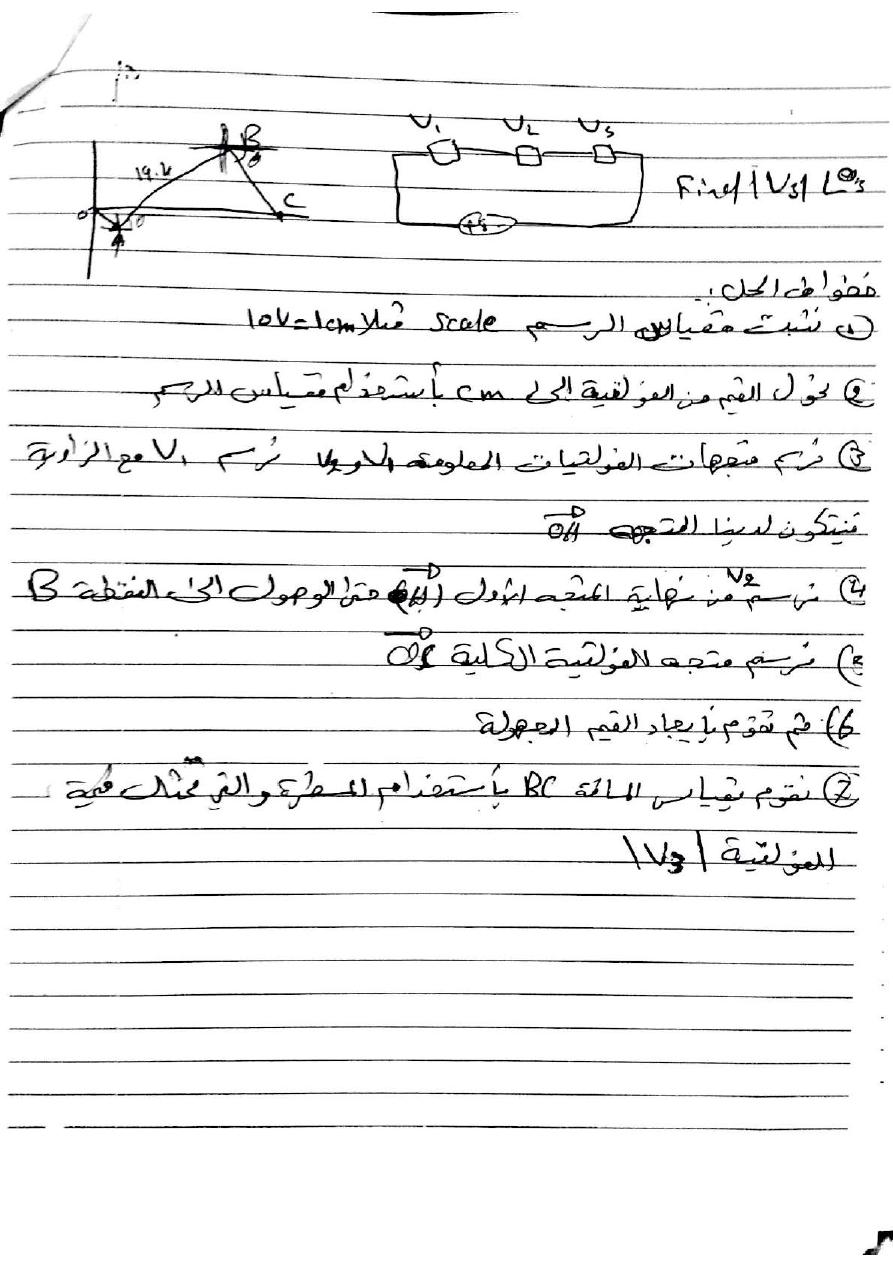 V1 V2 V3
B
θ
19.2
C
O
A
Find |V3| Lθ3
خطوات الحل:
① نثبت مقياس الرسم scale مثلا 10V=1cm
② نحول القيم من الفولتية الى cm بأستخدام مقياس الرسم
③ نرسم متجهات الفولتيات المعلومة V1 و V2 نرسم V1 مع الزاوية
فيتكون لدينا المتجه OA
④ نرسم V2 من نهاية المتجه الأول (OA) حتى الوصول الى النقطة B
نرسم متجه الفولتية الكلية OC
6) ثم نقوم بإيجاد القيم المجهولة
⑦ نقوم بقياس المسافة BC بأستخدام المسطرة والتي تمثل قيمة
الفولتية |V3|